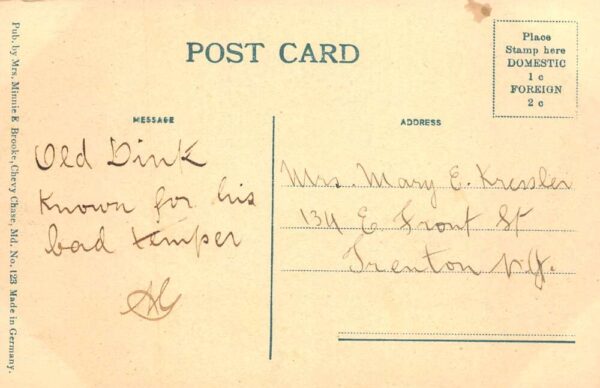 POST CARD
Place
Stamp here
DOMESTIC
1 c
FOREIGN
2 c
MESSAGE
ADDRESS
Old Dink
Known for his
bad temper
AG
Mrs. Mary E. Kressler
134 E Front St
Trenton N.J.
Pub. by Mrs. Minnie E Brooke, Chevy Chase, Md. No. 123 Made in Germany.